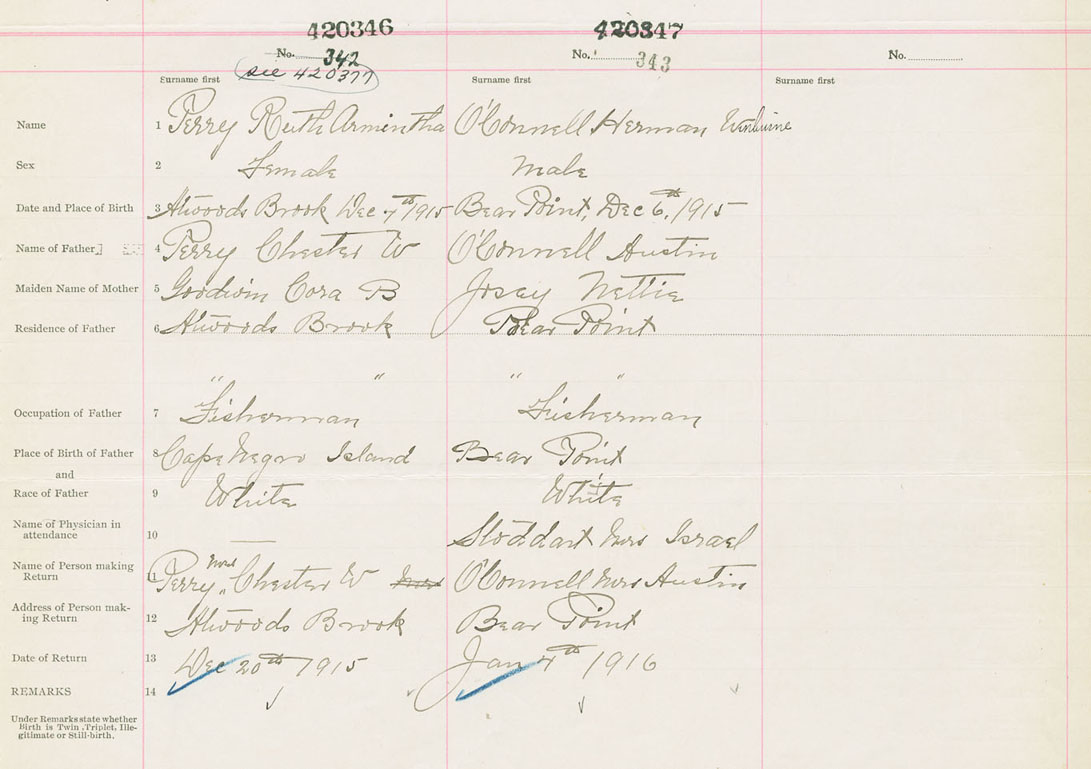 420346 420347
No. 342 No. 343 No.
see 420377
Surname first Surname first Surname first
Name 1 Perry Ruth Armintha O'Connell Herman
Sex 2 Female Male
Date and Place of Birth 3 Atwoods Brook Dec 7th 1915 Bear Point, Dec 6th, 1915
Name of Father 4 Perry Chester W O'Connell Austin
Maiden Name of Mother 5 Goodwin Cora B Josey Nettie
Residence of Father 6 Atwoods Brook Bear Point
" " " "
Occupation of Father 7 Fisherman Fisherman
Place of Birth of Father 8 Cape Negro Island Bear Point
and
Race of Father 9 White White
Name of Physician in
attendance 10 — Stoddart Mrs Israel
Name of Person making
Return 11 Perry, Mrs Chester W Mrs O'Connell Mrs Austin
Address of Person mak-
ing Return 12 Atwoods Brook Bear Point
Date of Return 13 Dec 20th 1915 Jan 7th 1916
REMARKS 14
Under Remarks state whether
Birth is Twin, Triplet, Ille-
gitimate or Still-birth.